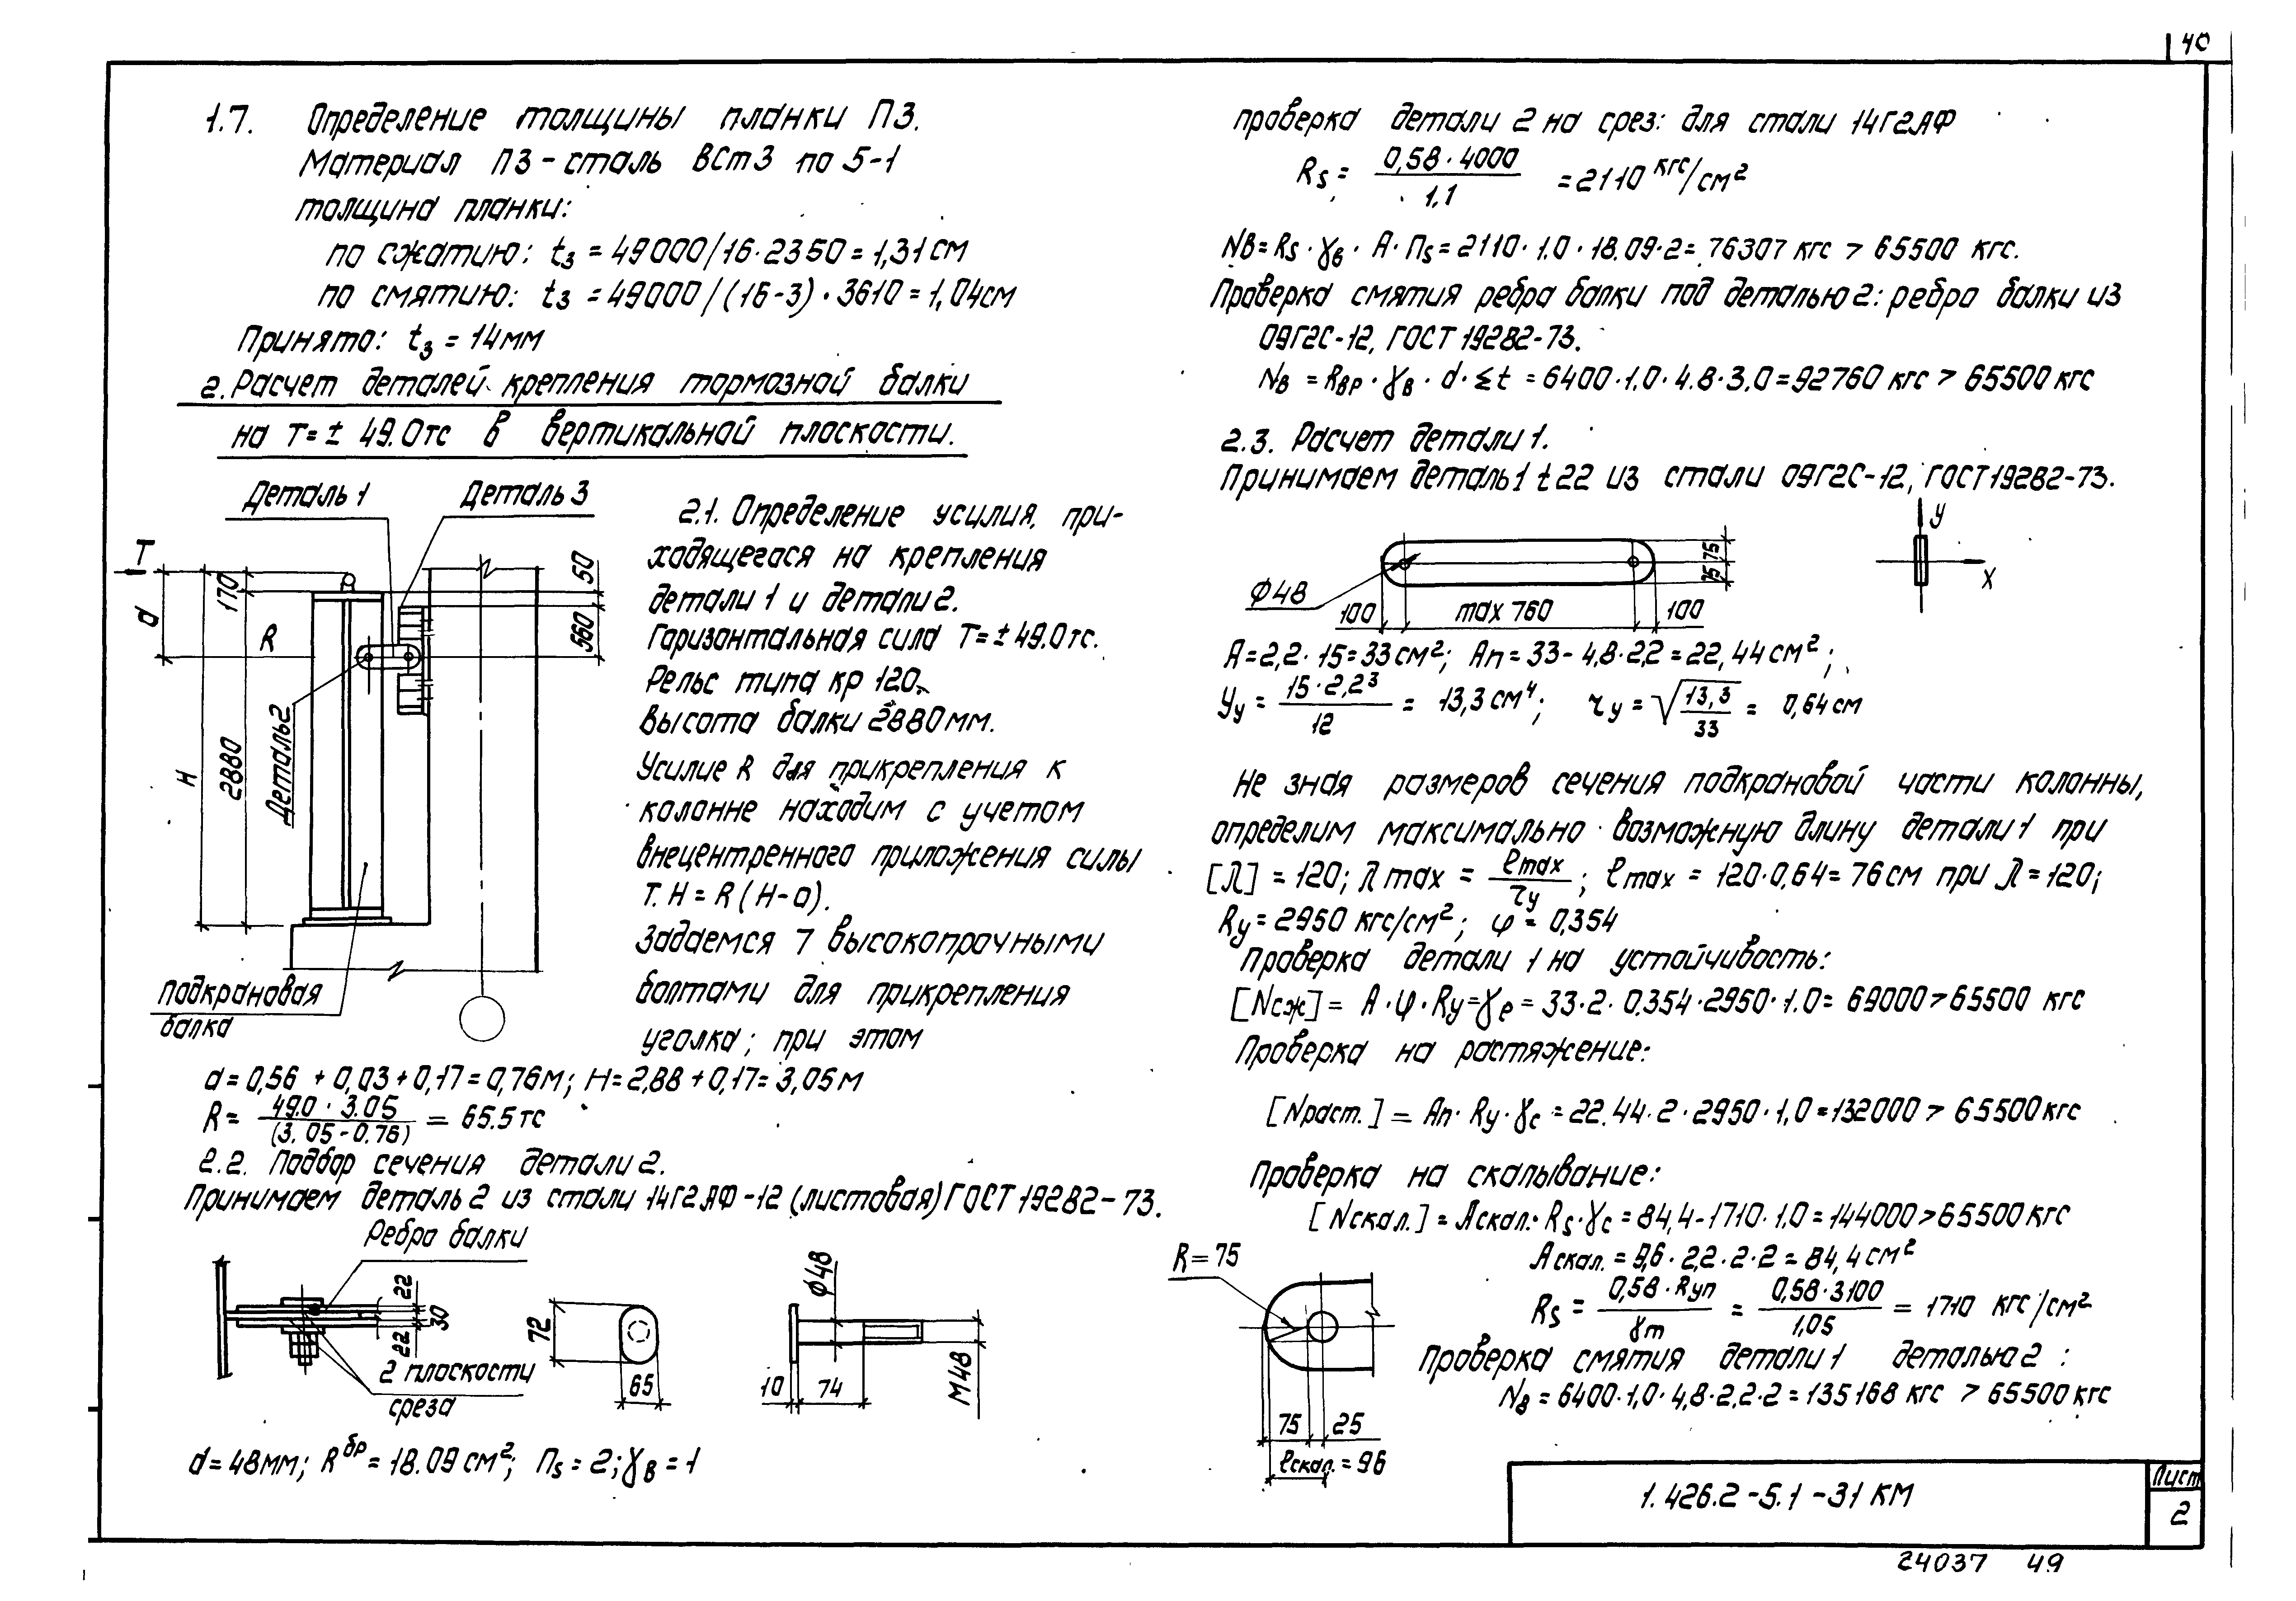 40
1.7. Определение толщины планки П3.
Материал П3 - сталь ВСт3 по 5-1
толщина планки:
по сжатию: t₃ = 49000/16·2350 = 1,31 см
по смятию: t₃ = 49000/(16-3)·3610 = 1,04 см
Принято: t₃ = 14 мм
2. Расчет деталей крепления тормозной балки
на Т = ± 49.0 тс в вертикальной плоскости.
Деталь 1
Деталь 3
Т
d
170
R
50
560
Деталь 2
Н
2880
Подкрановая
балка
2.1. Определение усилия, при-
ходящегося на крепления
детали 1 и детали 2.
Горизонтальная сила Т = ± 49.0 тс.
Рельс типа кр 120.
Высота балки 2880 мм.
Усилие R для прикрепления к
колонне находим с учетом
внецентренного приложения силы
Т.Н = R (Н-а).
Задаемся 7 высокопрочными
болтами для прикрепления
уголка; при этом
d = 0,56 + 0,03 + 0,17 = 0,76 м; Н = 2,88 + 0,17 = 3,05 м
R = 49.0 · 3.05 / (3.05 - 0.76) = 65.5 тс
2.2. Подбор сечения детали 2.
Принимаем деталь 2 из стали 14Г2АФ-12 (листовая) ГОСТ 19282-73.
Ребро балки
22
30
22
2 плоскости
среза
72
65
ф48
10
74
М48
d = 48 мм; R^бр = 18.09 см²; n_s = 2; γ_в = 1
проверка детали 2 на срез: для стали 14Г2АФ
R_s = 0,58 · 4000 / 1,1 = 2110 кгс/см²
Nв = R_s · γ_в · А · n_s = 2110 · 1.0 · 18.09 · 2 = 76307 кгс > 65500 кгс.
Проверка смятия ребра балки под деталью 2: ребро балки из
09Г2С-12, ГОСТ 19282-73.
N_в = R_вр · γ_в · d · Σt = 6400 · 1,0 · 4.8 · 3,0 = 92760 кгс > 65500 кгс
2.3. Расчет детали 1.
Принимаем деталь 1 t 22 из стали 09Г2С-12, ГОСТ 19282-73.
ф48
100
max 760
100
75
75
У
Х
А = 2,2 · 15 = 33 см²; Ап = 33 - 4,8 · 2,2 = 22,44 см²;
У_у = 15 · 2,2³ / 12 = 13,3 см⁴; r_у = √(13,3 / 33) = 0,64 см
Не зная размеров сечения подкрановой части колонны,
определим максимально возможную длину детали 1 при
[λ] = 120; λ max = ℓmax / r_у; ℓmax = 120 · 0,64 = 76 см при λ = 120;
Rу = 2950 кгс/см²; φ = 0,354
Проверка детали 1 на устойчивость:
[Nсж] = А · φ · Rу = γ_e = 33 · 2 · 0.354 · 2950 · 1.0 = 69000 > 65500 кгс
Проверка на растяжение:
[Nраст.] = Ап · Rу · γс = 22.44 · 2 · 2950 · 1,0 = 132000 > 65500 кгс
Проверка на скалывание:
[Nскал.] = Аскал. · R_s · γс = 84,4 - 1710 · 1.0 = 144000 > 65500 кгс
Аскал. = 9,6 · 2,2 · 2 · 2 = 84,4 см²
R_s = 0,58 · Rуп / γm = 0,58 · 3100 / 1,05 = 1710 кгс/см²
Проверка смятия детали 1 деталью 2 :
N_в = 6400 · 1,0 · 4,8 · 2,2 · 2 = 135168 кгс > 65500 кгс
R = 75
75
25
ℓскал. = 96
1.426.2-5.1-31 КМ
Лист
2
24037 49